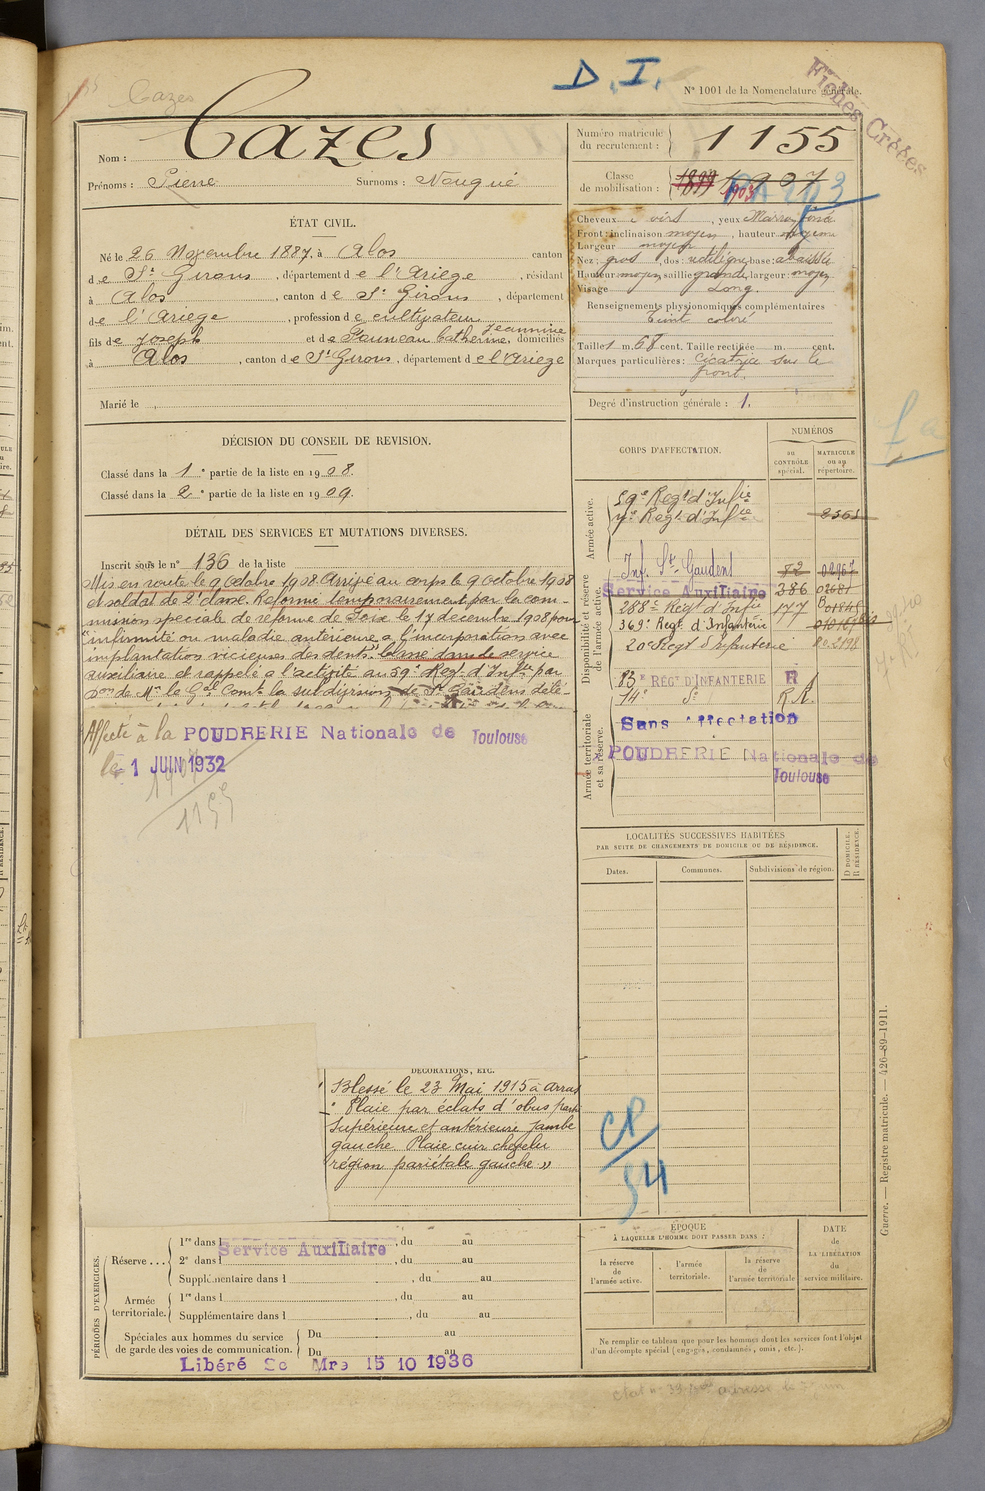 Cazes
D. I.
N° 1001 de la Nomenclature générale.
Fiches Créées
Nom : Cazes
Prénoms : Pierre Surnoms : Nougué
Numéro matricule du recrutement : 1155
Classe de mobilisation : 1899 1903 1907
ÉTAT CIVIL.
Né le 26 Novembre 1887, à Alos canton
de St Girons, département de l'Ariège, résidant
à Alos, canton de St Girons, département
de l'Ariège, profession de cultivateur
fils de Joseph et de Fauneau Catherine, Jeannine domiciliés
à Alos, canton de St Girons, département de l'Ariège
Marié le
Cheveux noirs, yeux Marron foncé
Front : inclinaison moyen, hauteur moyenne
Largeur moyen
Nez : gros, dos : rectiligne, base : abaissée
Hauteur moyen, saillie grande, largeur : moyen
Visage Long.
Renseignements physionomiques complémentaires
Teint coloré
Taille 1 m. 68 cent. Taille rectifiée m. cent.
Marques particulières : Cicatrice sur le
front.
Degré d'instruction générale : 1.
DÉCISION DU CONSEIL DE REVISION.
Classé dans la 1e partie de la liste en 1908.
Classé dans la 2e partie de la liste en 1909.
DÉTAIL DES SERVICES ET MUTATIONS DIVERSES.
Inscrit sous le n° 136 de la liste
Mis en route le 9 octobre 1908 Arrivé au corps le 9 octobre 1908
et soldat de 2e classe. Réformé temporairement par la com-
mission spéciale de réforme de Foix le 17 décembre 1908 pour
"infirmité ou maladie antérieure à l'incorporation avec
implantation vicieuses des dents". Classé dans le service
auxiliaire et rappelé à l'activité au 59e Regt d'Infie par
don de Mr le Gal Comt la subdivision de St Gaudens délé-
Affecté à la POUDRERIE Nationale de Toulouse
le 1 JUIN 1932
1907
1155
CORPS D'AFFECTATION.
NUMÉROS
au CONTRÔLE spécial.
MATRICULE ou au répertoire.
Armée active.
59e Regt d'Infie
Regt d'Infie
Disponibilité et réserve de l'armée active.
Inf. St Gaudens 82
Service Auxiliaire 386 02681
288e Regt d'Infie 177
369e Regt d'Infanterie
20e Regt d'Infanterie
Armée territoriale et sa réserve.
83e RÉGt D'INFANTERIE R
14e d° R.A.
Sans Affectation
POUDRERIE Nationale de
Toulouse
LOCALITÉS SUCCESSIVES HABITÉES
PAR SUITE DE CHANGEMENTS DE DOMICILE OU DE RÉSIDENCE.
D DOMICILE. R RÉSIDENCE.
Dates. Communes. Subdivisions de région.
DÉCORATIONS, ETC.
Blessé le 23 Mai 1915 à Arras
: Plaie par éclats d'obus partie
supérieure et antérieure jambe
gauche. Plaie cuir chevelu
région pariétale gauche »
CP
54
PÉRIODES D'EXERCICES.
Réserve... 1re dans l , du au
Service Auxiliaire
2e dans l , du au
Supplémentaire dans l , du au
Armée territoriale. 1re dans l , du au
Supplémentaire dans l , du au
Spéciales aux hommes du service de garde des voies de communication. Du au
Du au
Libéré Sce Mre 15 10 1936
ÉPOQUE
À LAQUELLE L'HOMME DOIT PASSER DANS :
la réserve de l'armée active.
l'armée territoriale.
la réserve de l'armée territoriale
DATE de LA LIBÉRATION du service militaire.
Ne remplir ce tableau que pour les hommes dont les services font l'objet
d'un décompte spécial (engagés, condamnés, omis, etc.).
Guerre. — Registre matricule. — 426-89-1911.